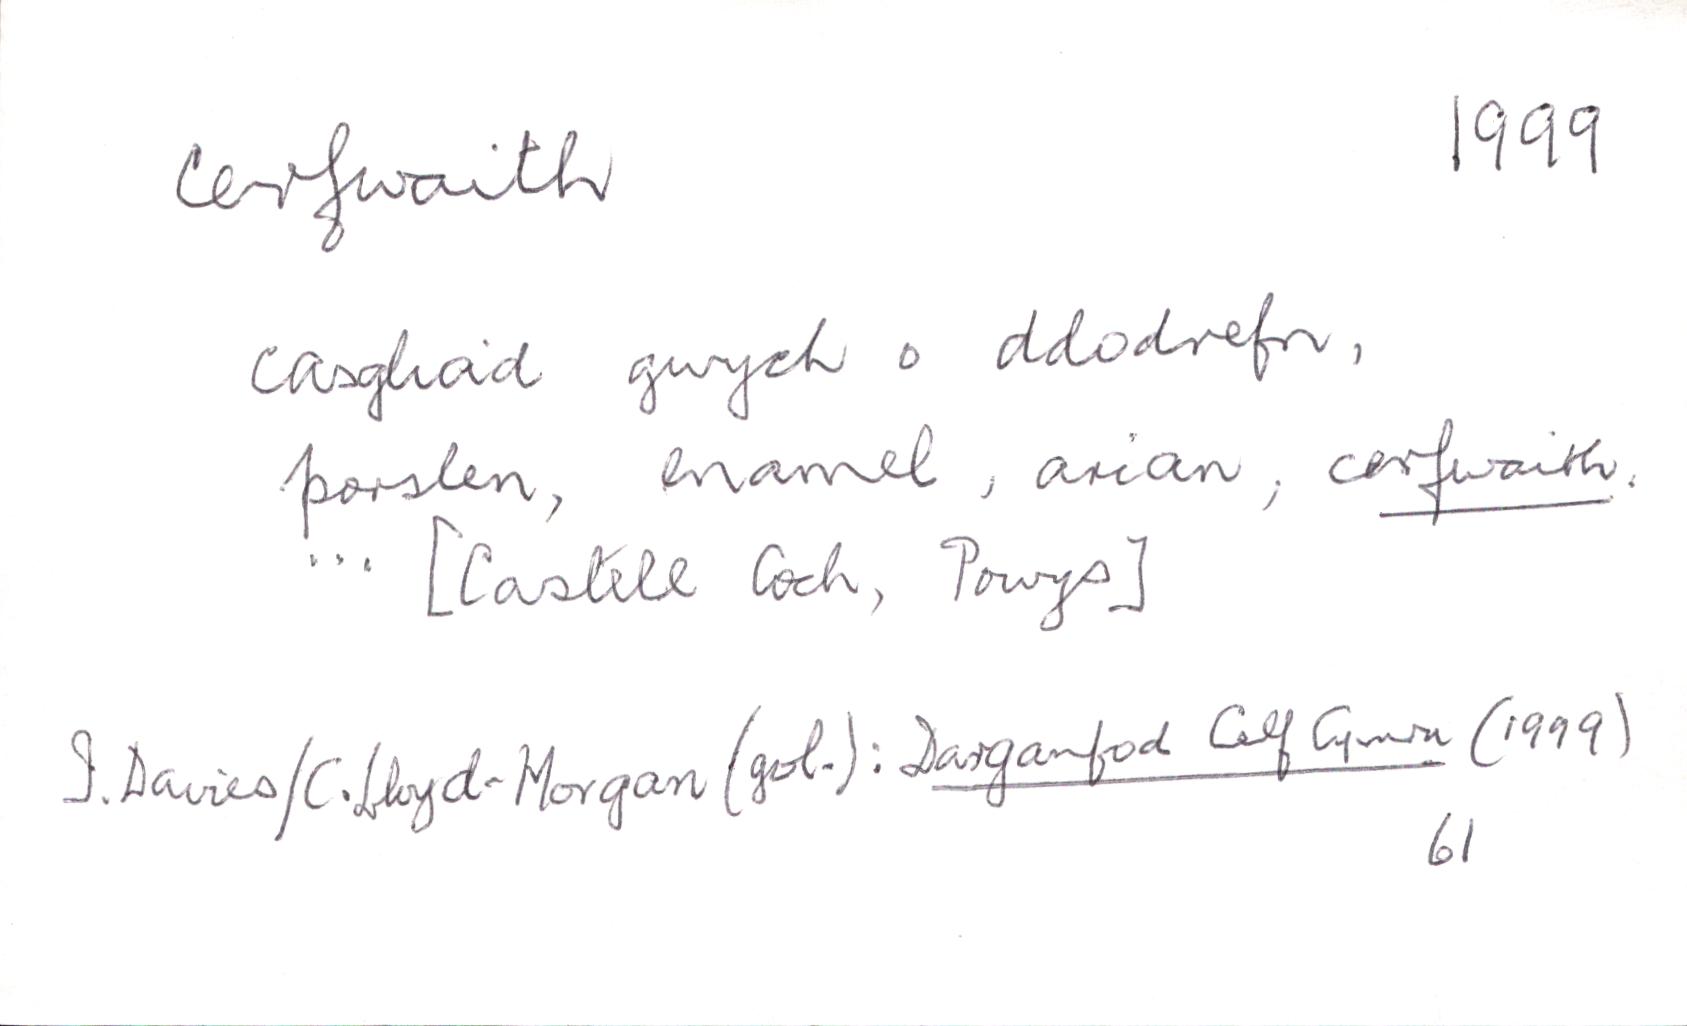 cerfwaith 1999
casgliad gwych o ddodrefn,
porslen, enamel, arian, cerfwaith.
... [Castell Coch, Powys]
I. Davies/C. Lloyd-Morgan (gol.): Darganfod Celf Cymru (1999)
61